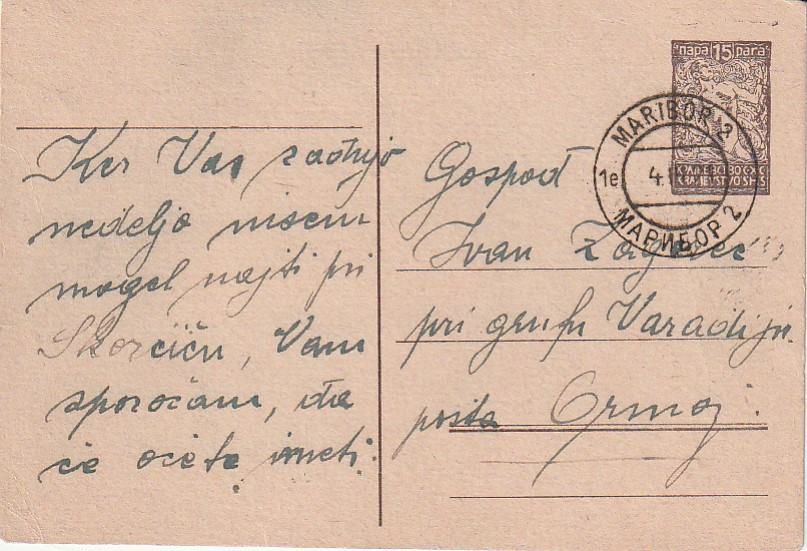 Ker Vas zadnjo
nedeljo nisem
mogel najti pri
Skorčiču, Vam
sporočam, da
če očete imeti
пара 15 para
КРАЉЕВСТВО СХС
KRALJEVSTVO SHS
MARIBOR 2
1e 4.
МАРИБОР 2
Gospod
Ivan
pri grofu Varadiju.
pošta Ormož.